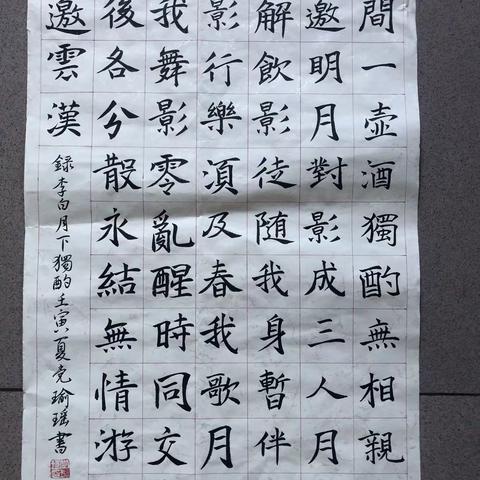 間一壺酒獨酌無相親
邀明月對影成三人月
解飲影徒随我身暫伴
影行樂湏及春我歌月
我舞影零亂醒時同交
後各分散永結無情游
邀雲漢
録李白月下獨酌壬寅夏党瑜瑶書